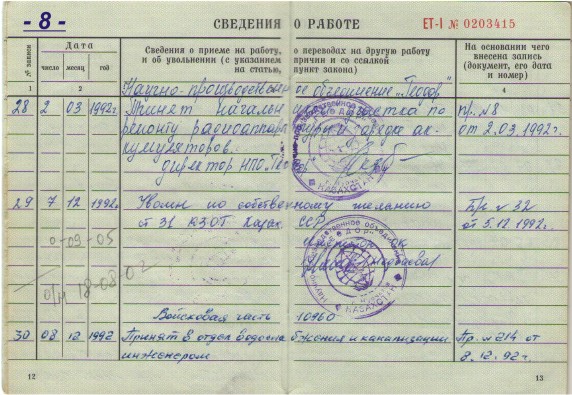 - 8 -
СВЕДЕНИЯ О РАБОТЕ
ЕТ-I № 0203415
№ записи
Дата
число
месяц
год
Сведения о приеме на работу, о переводах на другую работу
и об увольнении (с указанием причин и со ссылкой
на статью, пункт закона)
На основании чего
внесена запись
(документ, его дата
и номер)
1 2 3 4
Научно-производственное объединение "Теодор"
28 2 03 1992г. Принят начальником участка по пр. №8
ремонту радиоаппаратуры и зарядке ак- от 2.03.1992г.
кумуляторов.
директор НПО
29 7 12 1992г. Уволен по собственному желанию Пр № 32
от 31 КЗОТ Казах. ССР от 5.12.1992г.
0-09-05
о/н 18-08-02
КАЗАХСТАН
КАЗАХСТАН
Войсковая часть 10960
30 08 12 1992 Принят в отдел водоснабжения и канализации Пр. № 214 от
инженером 8.12.92г.
12
13